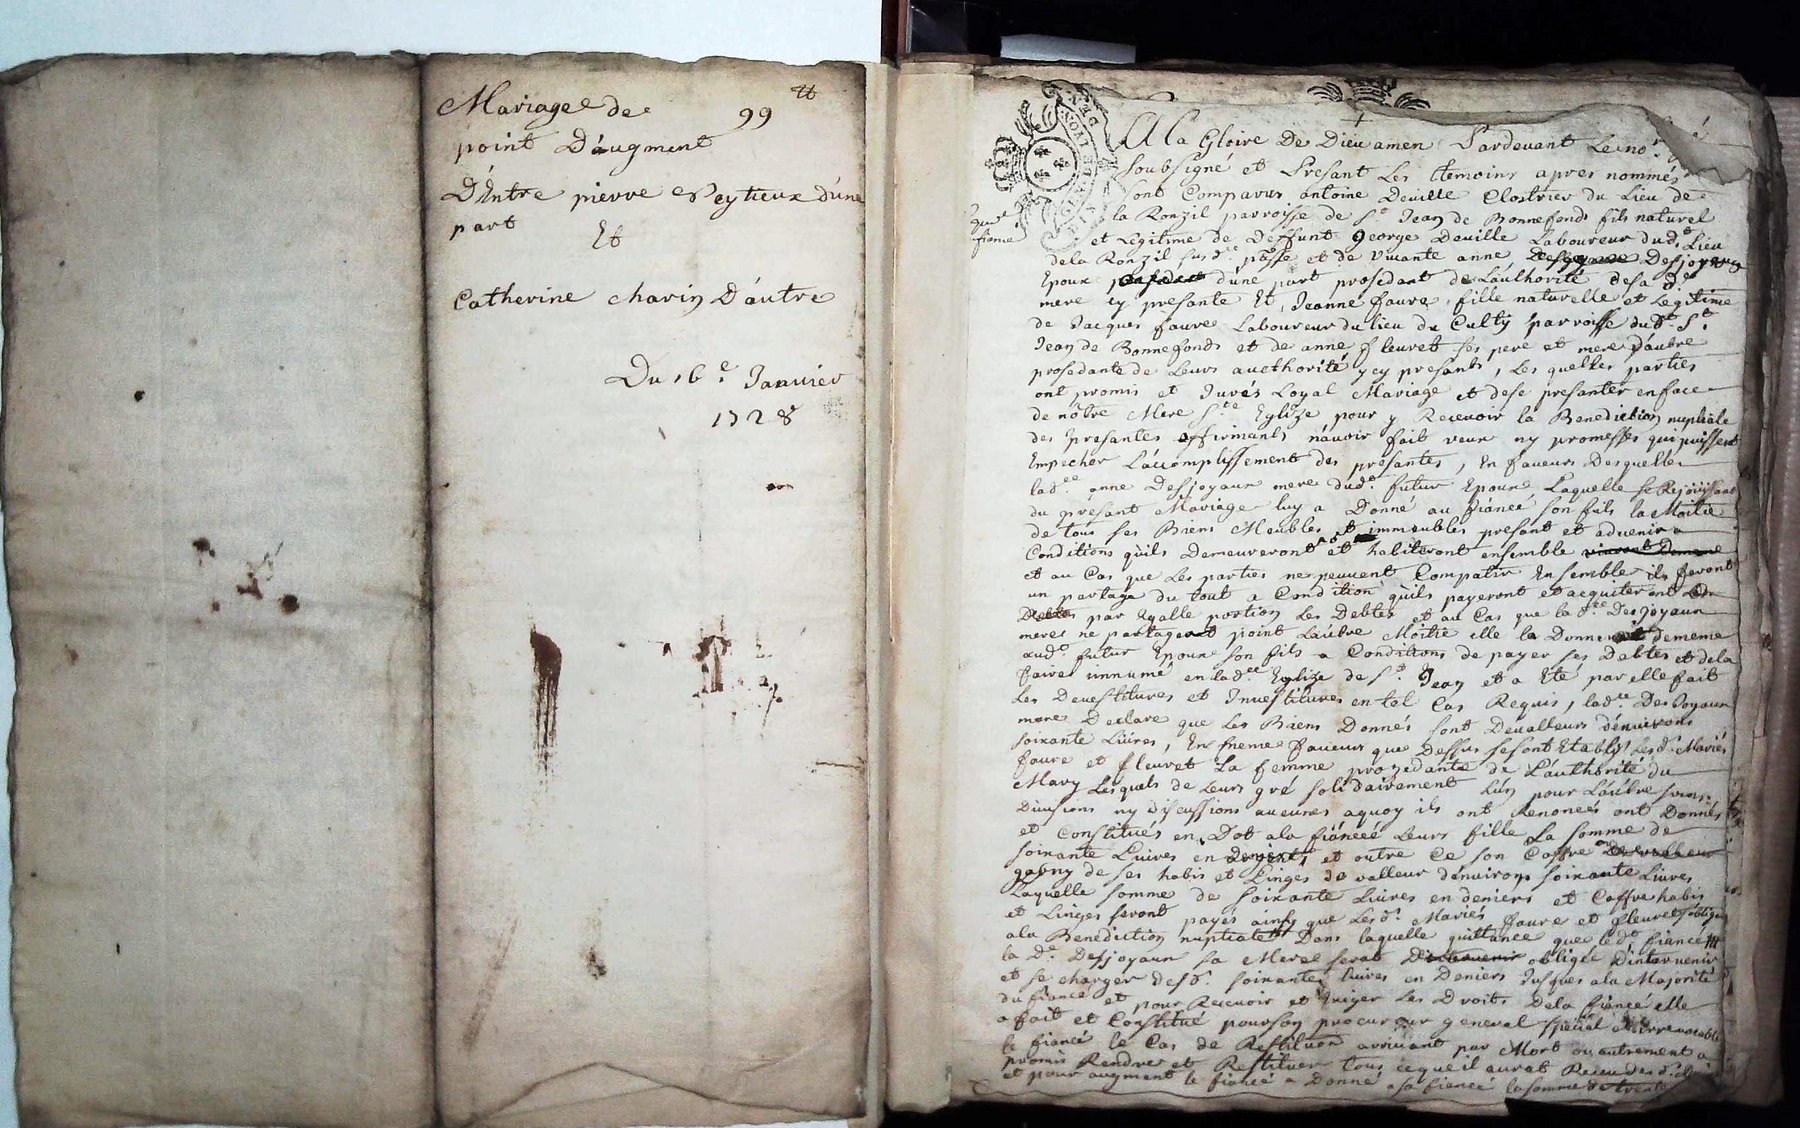 Mariage de 99 ᵗᵗ
point D'augment
D'Entre pierre Peytieux d'une
part
Et
Catherine charin D'autre
Du 16.e Januier
1728
GEN DE LYON
A la Gloire De Dieu amen Pardeuant Le no.re
soubsigné et Presant Les temoins apres nommés
sont Comparus antoine Deuille Clostrier du Lieu de
la Ronzil parroisse de S.t Jean de Bonnefond fils naturel
et Legitime de Deffunt george Deuille Laboureur dud.t Lieu
dela Ronzil sus.d. p.sse et de viuante anne Desjoyaux
Epoux d'une part prosedant de L'authorité desa d.e
mere cy presante Et Jeanne faure fille naturelle et Legitime
de Jacques faure Laboureur du lieu du Culty parroisse dud.t S.t
Jean de Bonnefond et de anne fleuret ses pere et mere D'autre
prosedante de Leurs aucthorité ycy presants, Les quelles parties
ont promis et Jurés Loyal Mariage et dese presanter enface
de nôtre Mere S.te Eglize pour y Receuoir la Benediction nuptiale
des Epresantes affirmants n'auoir fait veux ny promesses qui puissent
Empecher L'accomplissement des presantes, En faueurs Desquelles
lad.ee anne Desjoyaux mere dud.t futur Epoux Laquelle se Rejoüissant
du presant Mariage luy a Donné au fiáncé son fils la Moitié
de tous ses Biens Meubles et immeubles presant et aduenir a
Conditions qu'ils Demeureront et habiteront ensemble
et au Cas que Les parties ne peuuent Compatir Ensemble ils feront
un partage du tout a Condition qu'ils payeront et acquiteront
par Egalle portion Les Debtes et au Cas que la d.ee Desjoyaux
mere ne partageat point L'autre Moitié elle la Donne dememe
aud.t futur Epoux son fils a Conditions de payer ses Debtes et dela
faire innumé en lad.ee Eglize de S.t Jean et a Eté par elle fait
Les Deuestitures et Inuestitures en tel Cas Requis, lad.ee Desjoyaux
mere Declare que Les Biens Donnés sont De valleurs d'enuirons
soixante Liures, En meme faueurs que Dessus sesont Etablis Les d.s Mariés
faure et fleuret La femme prozedante de L'authorité du
Mary Lesquels de Leurs gré solidairement L'un pour L'autre sans
Diuisions ny discussions aucunes aquoy ils ont Renoncés ont Donnés
et Constitués en Dot a la fiáncée Leurs fille La somme de
soixante Liures en deniers et outre Ce son Coffre
garny de ses habis et Linges de valleur d'enuirons soixante Liures
Laquelle somme de soixante Liures en deniers et Coffre habis
et Linges seront payés ainsy que Les d.s Mariés faure et fleuret s'obligent
ala Benediction nuptiale Dans laquelle quittance que led.t fiancé
la D.e Desjoyaux sa Mere serat obligée D'interuenir
et se charger des d. soixante Liures en Deniers Jusques ala Majorité
du fiancé et pour Receuoir et Exiger Les Droits Dela fiáncé elle
a fait et Constitué pour son procureur general special et irreuocable
le fiancé le Cas de Restitution arriuant par Mort ou autrement a
promis Rendre et Restituer tous cequeil aurat Receu
et pour augment le fiancé a Donné a sa fiancée la somme de trente